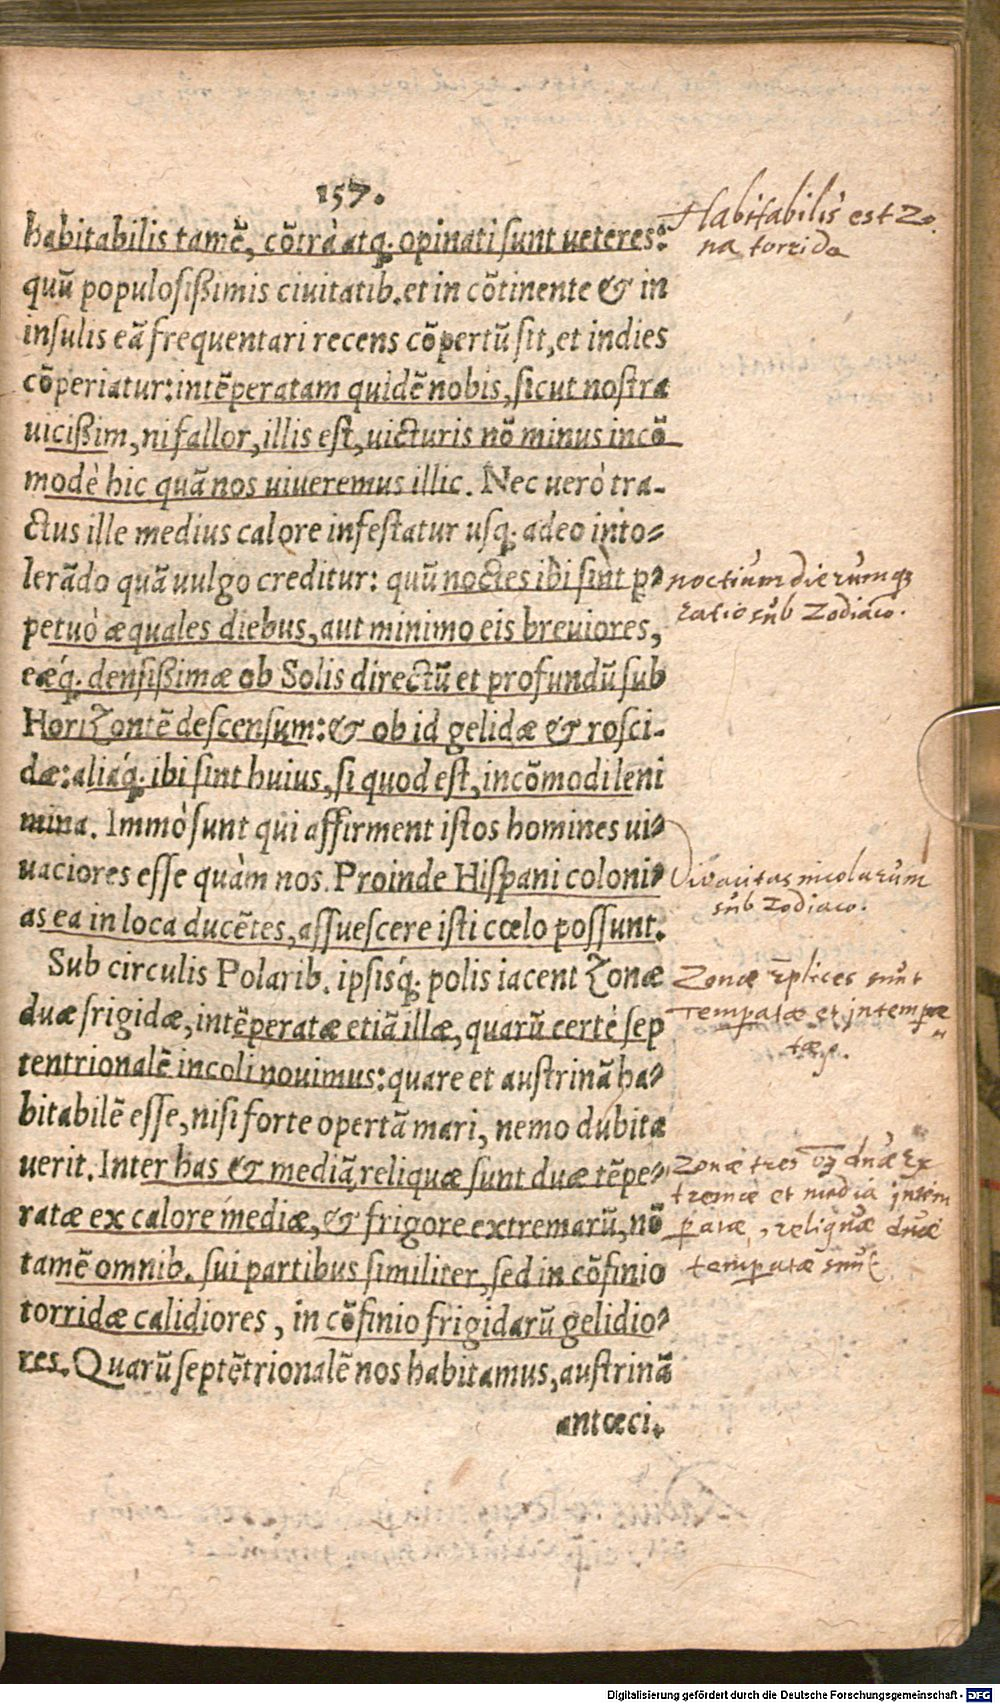 157.
habitabilis tamē, cōtrà atq; opinati sunt ueteres:
quū populosißimis ciuitatib. et in cōtinente & in
insulis eā frequentari recens cōpertū sit, et indies
cōperiatur: intēperatam quidē nobis, sicut nostra
uicißim, ni fallor, illis est, uicturis nō minus incō
modè hic quā nos uiueremus illic. Nec uerò tra-
ctus ille medius calore infestatur usq; adeo into-
lerādo quā uulgo creditur: quū noctes ibi sint p-
petuò æquales diebus, aut minimo eis breuiores,
eæq́; densißimæ ob Solis directū et profundū sub
Horizontē descensum: & ob id gelidæ & rosci-
dæ: aliaq́; ibi sint huius, si quod est, incōmodi leni
mina. Immò sunt qui affirment istos homines ui-
uaciores esse quàm nos. Proinde Hispani coloni-
as ea in loca ducētes, assuescere isti cœlo possunt.
Sub circulis Polarib. ipsisq́; polis iacent Zonæ
duæ frigidæ, intēperatæ etiā illæ, quarū certè sep
tentrionalē incoli nouimus: quare et austrinā ha-
bitabilē esse, nisi forte opertā mari, nemo dubita
uerit. Inter has & mediā, reliquæ sunt duæ tēpe-
ratæ ex calore mediæ, & frigore extremarū, nō
tamē omnib. sui partibus similiter, sed in cōfinio
torridæ calidiores, in cōfinio frigidarū gelidio-
res. Quarū septētrionalē nos habitamus, austrinā
antœci.
Habitabilis est Zo
na torrida
noctium dierumq;
ratio sub Zodiaco.
Vivacitas incolarum
sub Zodiaco.
Zonæ sunt
Temperatæ et intempe
tæ
Zonæ tres duæ ex
tremæ et media intem
peratæ, reliquæ duæ
temperatæ sunt
Digitalisierung gefördert durch die Deutsche Forschungsgemeinschaft - DFG